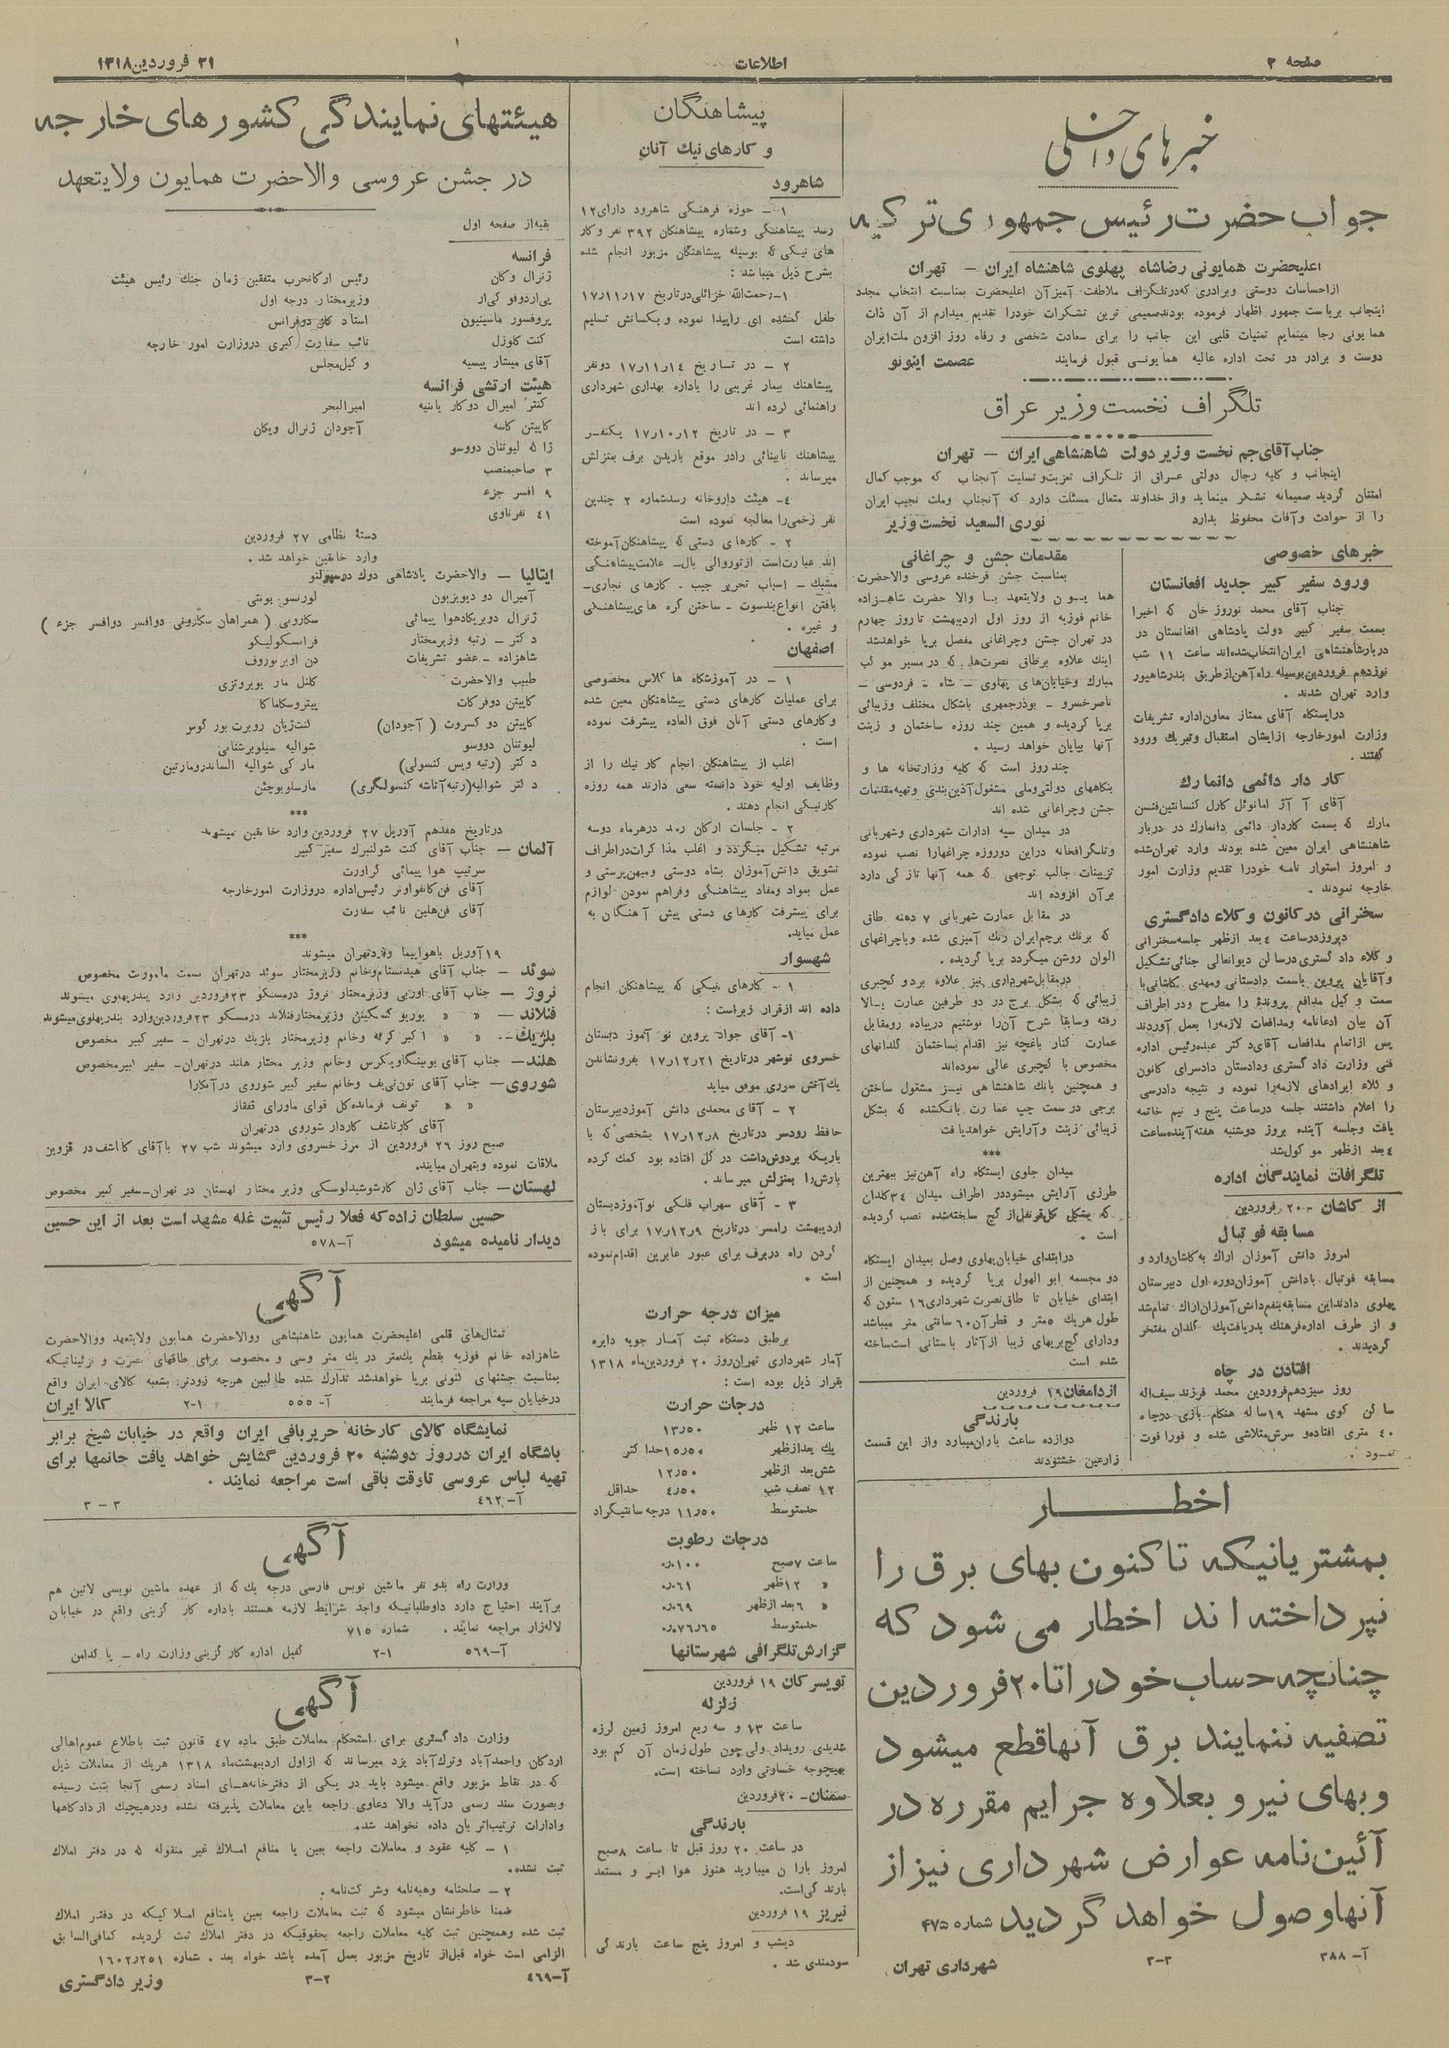 صفحه ۲
اطلاعات
۲۱ فروردین ۱۳۱۸
خبرهای داخلی
جواب حضرت رئیس جمهوری ترکیه
اعلیحضرت همایونی رضاشاه پهلوی شاهنشاه ایران – تهران
ازاحساسات دوستی وبرادری که درتلگراف ملاطفت آمیزآن اعلیحضرت بمناسبت انتخاب مجدد
اینجانب بریاست جمهور اظهار فرموده بودندصمیمی ترین تشکرات خودرا تقدیم میدارم از آن ذات
همایونی رجا مینمایم تمنیات قلبی این جانب را برای سعادت شخصی و رفاه روز افزون ملت ایران
دوست و برادر در تحت اداره عالیه همایونی قبول فرمایند عصمت اینونو
تلگراف نخست وزیر عراق
جناب آقای جم نخست وزیر دولت شاهنشاهی ایران – تهران
اینجانب و کلیه رجال دولتی عراق از تلگراف تعزیت وتسلیت آنجناب که موجب کمال
امتنان گردید صمیمانه تشکر مینماید واز خداوند متعال مسئلت دارد که آنجناب وملت نجیب ایران
را از حوادث وآفات محفوظ بدارد نوری السعید نخست وزیر
خبرهای خصوصی
ورود سفیر کبیر جدید افغانستان
جناب آقای محمد نوروز خان که اخیرا
بسمت سفیر کبیر دولت پادشاهی افغانستان در
دربارشاهنشاهی ایران انتخاب شده اند ساعت ۱۱ شب
نوزدهم فروردین بوسیله راه آهن ازطریق بندرشاهپور
وارد تهران شدند .
درایستگاه آقای ممتاز معاون اداره تشریفات
وزارت امورخارجه ازایشان استقبال وتبریک ورود
گفتند .
کار دار دائمی دانمارک
مارک که بسمت کاردار دائمی دانمارک در دربار
شاهنشاهی ایران معین شده بودند وارد تهران شده
و امروز استوار نامه خودرا تقدیم وزارت امور
خارجه نمودند .
سخنرانی در کانون وکلاء دادگستری
دیروزدرساعت ٤ بعد ازظهر جلسه سخنرانی
وکلاء دادگستری درسالن دیوانعالی جنائی تشکیل
وآقایان پروین باسمت دادستانی ومهدی کاشانی با
سمت وکیل مدافع پرونده را مطرح ودر اطراف
آن بیان ادعانامه ومدافعات لازمه را بعمل آوردند
پس ازاتمام مدافعات آقای دکتر عبده رئیس اداره
فنی وزارت دادگستری ودادستان دادسرای کانون
وکلاء ایرادهای لازمه را نموده و نتیجه دادرسی
را اعلام داشتند جلسه درساعت پنج و نیم خاتمه
یافت وجلسه آینده بروز دوشنبه هفته آینده ساعت
٤ بعد ازظهر موکول شد
تلگرافات نمایندگان اداره
از کاشان – ۲۰ فروردین
مسابقه فوتبال
امروز دانش آموزان اراک به کاشان وارد و
مسابقه فوتبال بادانش آموزان دوره اول دبیرستان
پهلوی دادند این مسابقه بنفع دانش آموزان اراک تمام شد
و از طرف اداره فرهنگ بدریافت یک گلدان مفتخر
گردیدند .
افتادن در چاه
روز سیزدهم فروردین محمد فرزند سیف اله
ساکن کوی مشهد ۱۹ ساله هنگام بازی درچاه
٤۰ متری افتاده و سرش متلاشی شده و فورا فوت
نمود .
مقدمات جشن و چراغانی
بمناسبت جشن فرخنده عروسی والاحضرت
همایون ولایتعهد با والا حضرت شاهزاده
خانم فوزیه از روز اول اردیبهشت تا روز چهارم
در تهران جشن وچراغانی مفصل برپا خواهدشد
اینک علاوه برطاق نصرت ها که در مسیر موکب
مبارک وخیابان های پهلوی – شاه – فردوسی –
ناصرخسرو – بوذرجمهری باشکال مختلف وزیبائی
برپا گردیده و همین چند روزه ساختمان و زینت
آنها بپایان خواهد رسید .
چند روز است که کلیه وزارتخانه ها و
بنگاههای دولتی وملی مشغول آذین بندی وتهیه مقدمات
جشن وچراغانی شده اند
در میدان سپه ادارات شهرداری وشهربانی
وتلگرافخانه دراین دوروزه چراغها را نصب نموده
تزیینات جالب توجهی که همه آنها تازگی دارد
برآن افزوده اند
در مقابل عمارت شهربانی ۷ دهنه طاق
که برنگ پرچم ایران رنگ آمیزی شده وباچراغهای
الوان روشن میگردد برپا گردیده .
درمقابل شهرداری نیز علاوه بردو گچبری
زیبائی که بشکل برج در دو طرفین عمارت بالا
رفته وسابقا شرح آن را نوشتیم درپیاده رومقابل
عمارت کنار باغچه نیز اقدام بساختمان گلدانهای
مخصوص با گچبری عالی نموده اند
و همچنین بانک شاهنشاهی نیز مشغول ساختن
برجی در سمت چپ عمارت بانک شده که بشکل
زیبائی زینت وآرایش خواهد یافت
***
میدان جلوی ایستگاه راه آهن نیز ببهترین
طرزی آرایش میشود در اطراف میدان ۳٤ گلدان
که بشکل گل قرنفل از گچ ساخته شده نصب گردیده
است .
درابتدای خیابان پهلوی وصل بمیدان ایستگاه
دو مجسمه ابوالهول برپا گردیده و همچنین از
ابتدای خیابان تا طاق نصرت شهرداری ۱٦ ستون که
طول هریک ٥ متر و قطر آن ٦۰ سانتی متر میباشد
ودارای گچ بریهای زیبا ازآثار باستانی است ساخته
شده است
ازدامغان ۱۹ فروردین
بارندگی
دوازده ساعت باران میبارد واز این قسمت
زارعین خشنودند
اخطار
بمشتریانیکه تاکنون بهای برق را
نپرداخته اند اخطار می شود که
چنانچه حساب خود را تا ۲۰ فروردین
تصفیه ننمایند برق آنها قطع میشود
و بهای نیرو بعلاوه جرایم مقرره در
آئین نامه عوارض شهرداری نیز از
آنها وصول خواهد گردید شماره ۴۷۵
آ– ۳۸۸ ۳–۳ شهرداری تهران
پیشاهنگان
و کارهای نیک آنان
شاهرود
۱ – حوزه فرهنگی شاهرود دارای ۱۲
رسد پیشاهنگی وشماره پیشاهنگان ۳۹۲ نفر وکار
های نیکی که بوسیله پیشاهنگان مزبور انجام شده
بشرح ذیل میباشد :
۱– رحمت الله خزائلی درتاریخ ۱۷ر۱۱ر۱۷
طفل گمشده ای راپیدا نموده و بکسانش تسلیم
داشته است
۲ – در تاریخ ۱٤ر۱۱ر۱۷ دونفر
پیشاهنگ بیمار غریبی را باداره بهداری شهرداری
راهنمائی کرده اند
۳ – در تاریخ ۱۲ر۱۰ر۱۷ یکنفر
پیشاهنگ نابینائی رادر موقع باریدن برف بمنزلش
میرساند .
٤– هیئت داروخانه رسد شماره ۲ چندین
نفر زخمی را معالجه نموده است
۲ – کارهای دستی که پیشاهنگان آموخته
اند عبارت است ازتوروالی بال – علامت پیشاهنگی
مشبک – اسباب تحریر جیب . کارهای نجاری–
بافتن انواع بندسوت – ساختن گره های پیشاهنگی
و غیره .
اصفهان
۱ – در آموزشگاه ها کلاس مخصوصی
برای عملیات کارهای دستی پیشاهنگان معین شده
وکارهای دستی آنان فوق العاده پیشرفت نموده
است .
اغلب از پیشاهنگان انجام کار نیک را از
وظایف اولیه خود دانسته سعی دارند همه روزه
کارنیکی انجام دهند .
۲ – جلسات ارکان رسد درهرماه دوسه
مرتبه تشکیل میگردد و اغلب مذاکرات دراطراف
تشویق دانش آموزان بشاه دوستی و میهن پرستی و
عمل بمواد ومفاد پیشاهنگی وفراهم نمودن لوازم
برای پیشرفت کارهای دستی پیش آهنگان به
عمل میاید.
شهسوار
۱ – کارهای نیکی که پیشاهنگان انجام
داده اند ازقرار زیراست :
۱– آقای جواد پروین نو آموز دبستان
خسروی نوشهر درتاریخ ۲۱ر۱۲ر۱۷ بفرونشاندن
یک آتش سوزی موفق میاید
۲ – آقای محمدی دانش آموز دبیرستان
حافظ رودسر درتاریخ ۸ر۱۲ر۱۷ بشخصی که با
باریکه بردوش داشت در گل افتاده بود کمک کرده
بارش را بمنزلش میرساند .
۳ – آقای سهراب فلکی نوآموزدبستان
اردیبهشت رامسر درتاریخ ۹ر۱۲ر۱۷ برای باز
کردن راه دربرف برای عبور عابرین اقدام نموده
است .
میزان درجه حرارت
برطبق دستگاه ثبت آمار جویه دایره
آمار شهرداری تهران روز ۲۰ فروردین ماه ۱۳۱۸
بقرار ذیل بوده است :
درجات حرارت
ساعت ۱۲ ظهر ۱۳٫۵۰
یک بعدازظهر ۱۵٫۵۰ حداکثر
شش بعد ازظهر ۱۲٫۵۰
۱۲ نصف شب ٤٫٥۰ حداقل
حدمتوسط ۱۱٫۵۰ درجه سانتیگراد
درجات رطوبت
ساعت ۷ صبح ۰٫۱۰۰
» ۱۲ ظهر ۰٫۶۱
» ٦ بعد ازظهر ۰٫۶۹
حدمتوسط ۰٫۷۶٫۶۵
گزارش تلگرافی شهرستانها
تویسرکان ۱۹ فروردین
زلزله
ساعت ۱۳ و سه ربع امروز زمین لرزه
شدیدی رویداد ولی چون طول زمان آن کم بود
بهیچوجه خسارتی وارد نساخته است.
سمنان – ۲۰ فروردین
بارندگی
در ساعت ۲۰ روز قبل تا ساعت ۸ صبح
امروز باران میبارید هنوز هوا ابر و مستعد
بارندگی است.
نیریز ۱۹ فروردین
دیشب و امروز پنج ساعت بارندگی
سودمندی شد .
هیئتهای نمایندگی کشورهای خارجه
در جشن عروسی والاحضرت همایون ولایتعهد
بقیه از صفحه اول
فرانسه
ژنرال وگان رئیس ارکانحرب متفقین زمان جنگ رئیس هیئت
پی اردوفو کی ار وزیرمختار درجه اول
پروفسور ماسینیون استاد کلژ دوفرانس
کنت کلوزل نائب سفارت کبری دروزارت امور خارجه
آقای میشار پیسیه وکیل مجلس
هیئت ارتشی فرانسه
کنتر امیرال دوکار پانتیه امیرالبحر
کاپیتن کاسه آجودان ژنرال ویگان
ژاک لیوتنان دووسو
۳ صاحبمنصب
۹ افسر جزء
٤۱ نفرناوی
دستهٔ نظامی ۲۷ فروردین
وارد خانقین خواهد شد .
ایتالیا – والاحضرت پادشاهی دوک دوسپولتو
آمیرال دو دیویزیون لورنسو پونتی
ژنرال دوبریگادهوا پیمائی سکارونی ( همراهان سکارونی دوافسر دوافسر جزء )
دکتر – رتبه وزیرمختار فرانسکولیکو
شاهزاده – عضو تشریفات
طبیب والاحضرت
کاپیتن دوفرکات پیتروسکاماکا
کاپیتن دو کسروت ( آجودان)
لیوتنان دووسو
دکتر (رتبه ویس کنسولی)
دکتر شوالیه(رتبه آتاشه کنسولگری)
***
درتاریخ هفدهم آوریل ۲۷ فروردین وارد خانقین میشوند
آلمان – جناب آقای کنت شولنبرک سفیر کبیر
سرتیپ هوا پیمائی گراورت
رئیس اداره دروزارت امورخارجه
آقای فن هلین نائب سفارت
***
۱۹ آوریل باهواپیما واردتهران میشوند
سوئد – جناب آقای هیدنستام وخانم وزیرمختار سوئد درتهران بسمت ماموریت مخصوص
نروژ – جناب آقای اوربی وزیرمختار نروژ درمسکو ۲۳ فروردین وارد بندرپهلوی میشوند
فنلاند – » » وزیرمختار فنلاند درمسکو ۲۳ فروردین وارد بندرپهلوی میشوند
بلژیک – » » وخانم وزیرمختار بلژیک درتهران – سفیر کبیر مخصوص
هلند – جناب آقای وخانم وزیر مختار هلند درتهران– سفیر کبیر مخصوص
شوروی – جناب آقای وخانم سفیر کبیر شوروی در آنکارا
» » تونف فرمانده کل قوای ماورای قفقاز
آقای کارتاشف کاردار شوروی درتهران
صبح روز ۲٦ فروردین از مرز خسروی وارد میشوند شب ۲۷ باآقای کاشف در قزوین
ملاقات نموده وبتهران میایند.
لهستان – جناب آقای ژان کارشوشیدلوسکی وزیر مختار لهستان در تهران–سفیر کبیر مخصوص
حسین سلطان زاده که فعلا رئیس تثبیت غله مشهد است بعد از این حسین
دیدار نامیده میشود آ–۵۷۸
آگهی
تمثال های قلمی اعلیحضرت همایون شاهنشاهی ووالاحضرت همایون ولایتعهد ووالاحضرت
شاهزاده خانم فوزیه بقطع یک متر در یک متر وسی و مخصوص برای طاقهای نصرت و تزئیناتیکه
بمناسبت جشنهای کنونی برپا خواهد شد تدارک شده طالبین هرچه زودتر بشعبه کالای ایران واقع
درخیابان سپه مراجعه فرمایند آ– ۵۵۵ ۲–۱ کالا ایران
نمایشگاه کالای کارخانه حریربافی ایران واقع در خیابان شیخ برابر
باشگاه ایران درروز دوشنبه ۲۰ فروردین گشایش خواهد یافت خانمها برای
تهیه لباس عروسی تا وقت باقی است مراجعه نمایند .
آ–٤٦۲ ۳ – ۳
آگهی
وزارت راه بدو نفر ماشین نویس فارسی درجه یک که از عهده ماشین نویسی لاتین هم
برآیند احتیاج دارد داوطلبانیکه واجد شرایط لازمه هستند باداره کار گزینی واقع در خیابان
لاله زار مراجعه نمایند . شماره ۷۱۵
آ–۵٦۹ ۲–۱ کفیل اداره کار گزینی وزارت راه – پاکدامن
آگهی
وزارت دادگستری برای استحکام معاملات طبق ماده ٤۷ قانون ثبت باطلاع عموم اهالی
اردکان واحمدآباد وترک آباد یزد میرساند که ازاول اردیبهشت ماه ۱۳۱۸ هریک از معاملات ذیل
که در نقاط مزبور واقع میشود باید در یکی از دفترخانه های اسناد رسمی آنجا بثبت رسیده
وبصورت سند رسمی درآید والا دعاوی راجعه باین معاملات پذیرفته نشده ودرهیچیک از دادگاهها
وادارات ترتیب اثر بان داده نخواهد شد.
۱ – کلیه عقود و معاملات راجعه بعین یا منافع املاک غیر منقوله که در دفتر املاک
ثبت نشده.
۲ – صلحنامه وهبه نامه وشرکت نامه .
ضمنا خاطرنشان میشود که ثبت معاملات راجعه بعین یامنافع املاکیکه در دفتر املاک
ثبت شده وهمچنین ثبت کلیه معاملات راجعه بحقوقیکه در دفتر املاک ثبت گردیده کمافی السابق
الزامی است خواه قبل از تاریخ مزبور بعمل آمده باشد خواه بعد . شماره ۲۵۱ر۱٦۰۲
آ–٤٦۹ ۳–۲ وزیر دادگستری